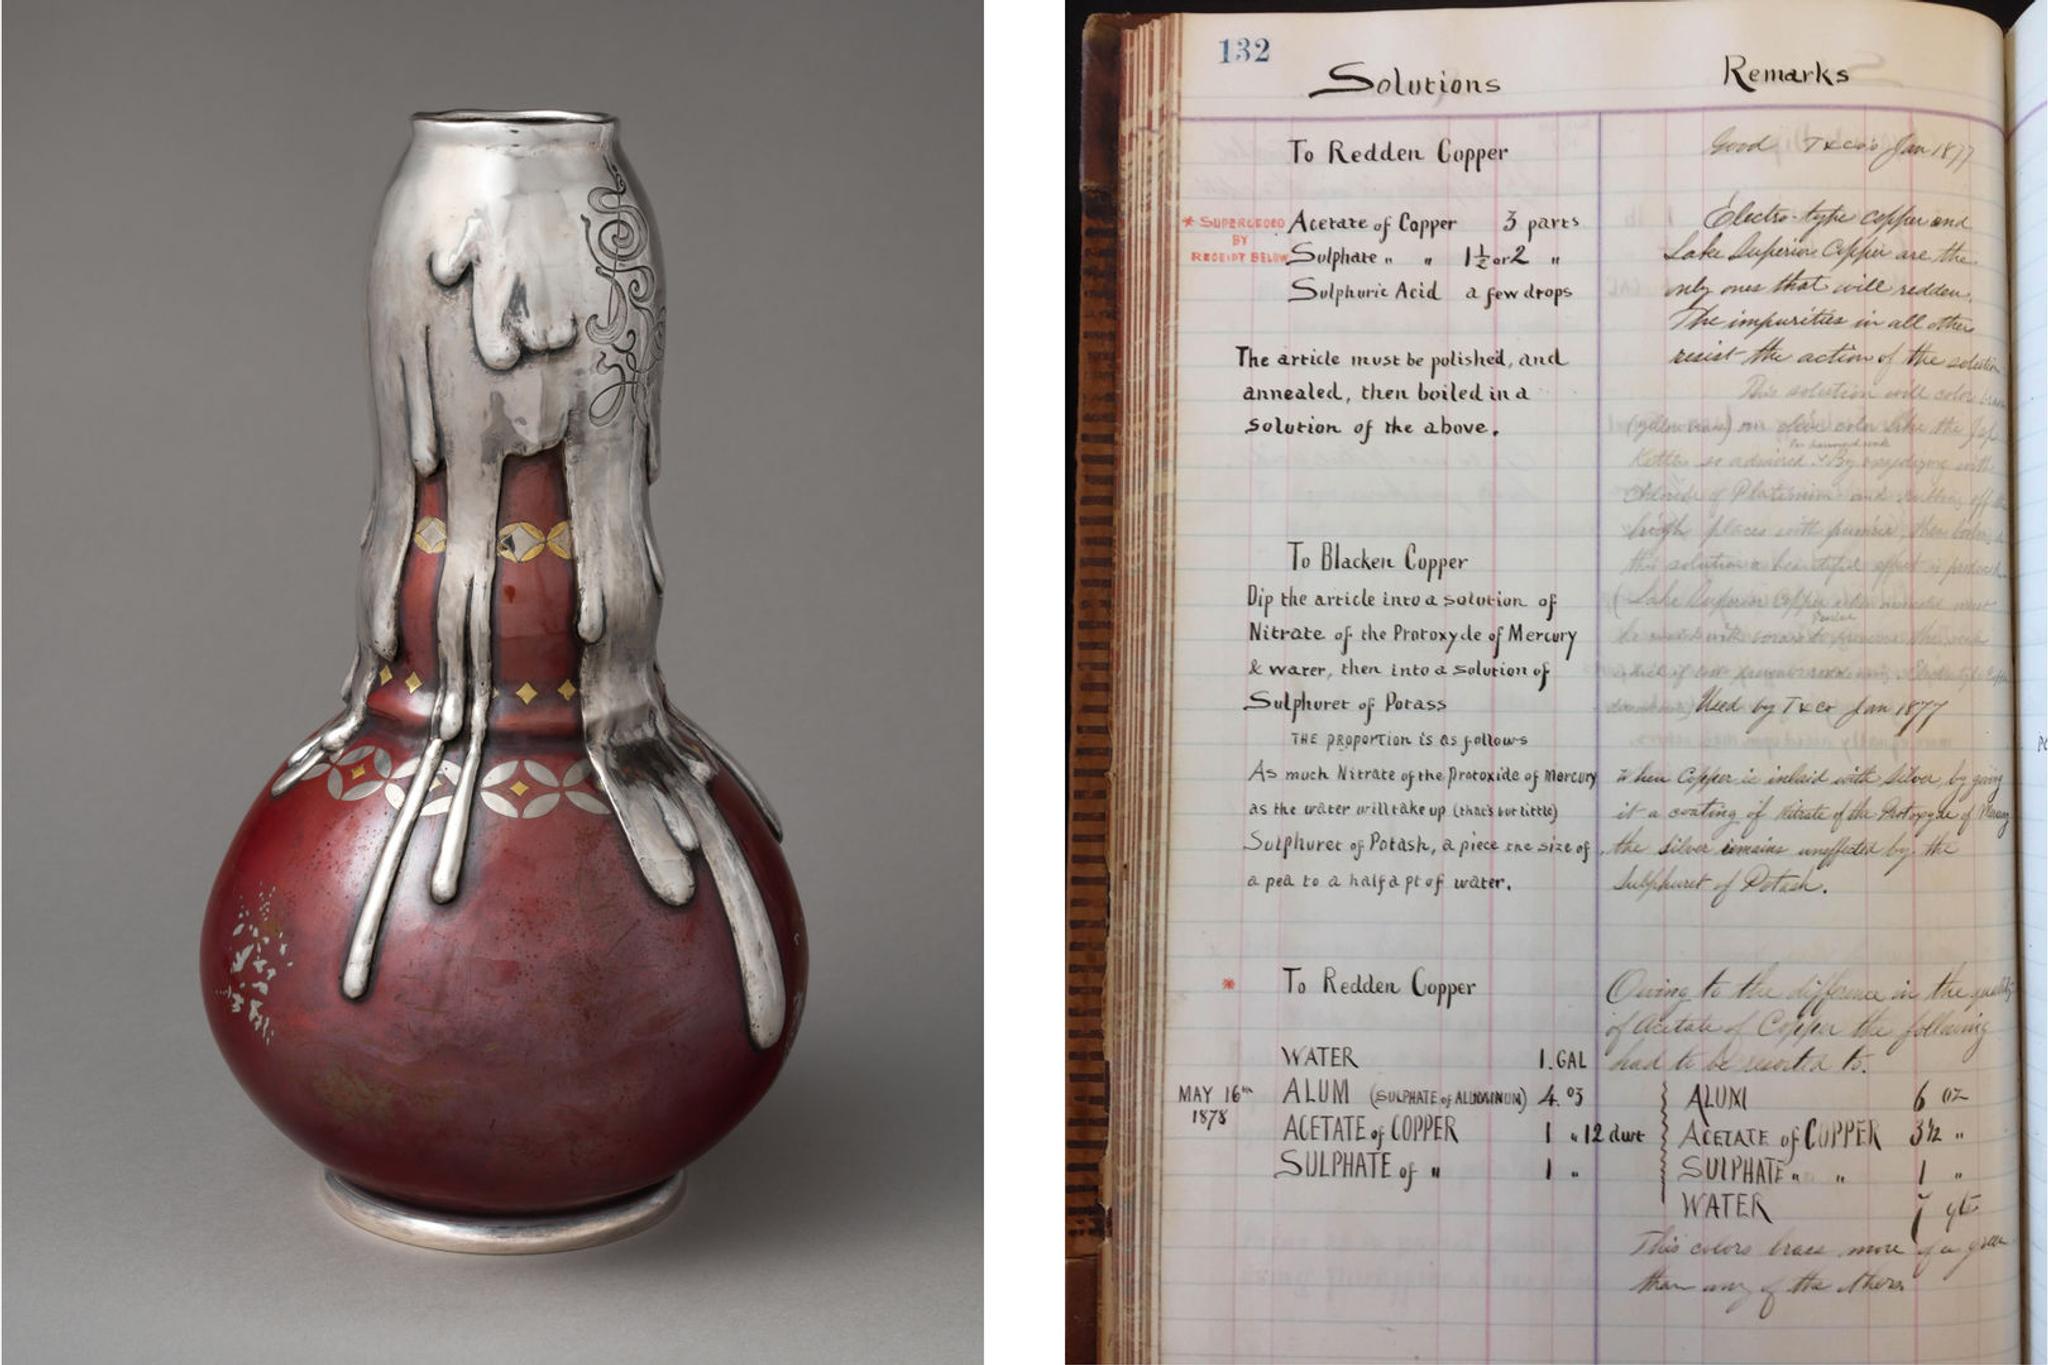 132
Solutions
Remarks
To Redden Copper
Good T & Co's Jan 1877
* SUPERCEDED
BY
RECEIPT BELOW
Acetate of Copper 3 parts
Sulphate " " 1½ or 2 "
Sulphuric Acid a few drops
The article must be polished, and
annealed, then boiled in a
solution of the above.
Electro-type copper and
Lake Superior Copper are the
only ones that will redden.
The impurities in all others
resist the action of the solution
This solution will color
(yellow brass) an olive color like the Jap
Kettles so admired. By oxydizing with
Chloride of Platinum and rubbing off
high places with pumice, then boiling
this solution a beautiful effect is produced
(Lake Superior Copper
To Blacken Copper
Dip the article into a solution of
Nitrate of the Protoxyde of Mercury
& water, then into a solution of
Sulphuret of Potass
THE PROPORTION is as follows
As much Nitrate of the Protoxide of Mercury
as the water will take up (that's but little)
Sulphuret of Potash, a piece the size of
a pea to a half a pt of water.
Used by T & Co Jan 1877
When Copper is inlaid with Silver, by giving
it a coating of Nitrate of the Protoxyde of
the silver remains uneffected by the
Sulphuret of Potash.
* To Redden Copper
MAY 16th
1878
WATER 1. GAL
ALUM (SULPHATE of ALUMINUM) 4. oz
ACETATE of COPPER 1 " 12 dwt
SULPHATE of " 1 "
Owing to the difference in the quality
of Acetate of Copper the following
had to be resorted to.
ALUM 6 oz
ACETATE of COPPER 3½ "
SULPHATE " " 1 "
WATER 7
This colors brass more of a
than any of the others